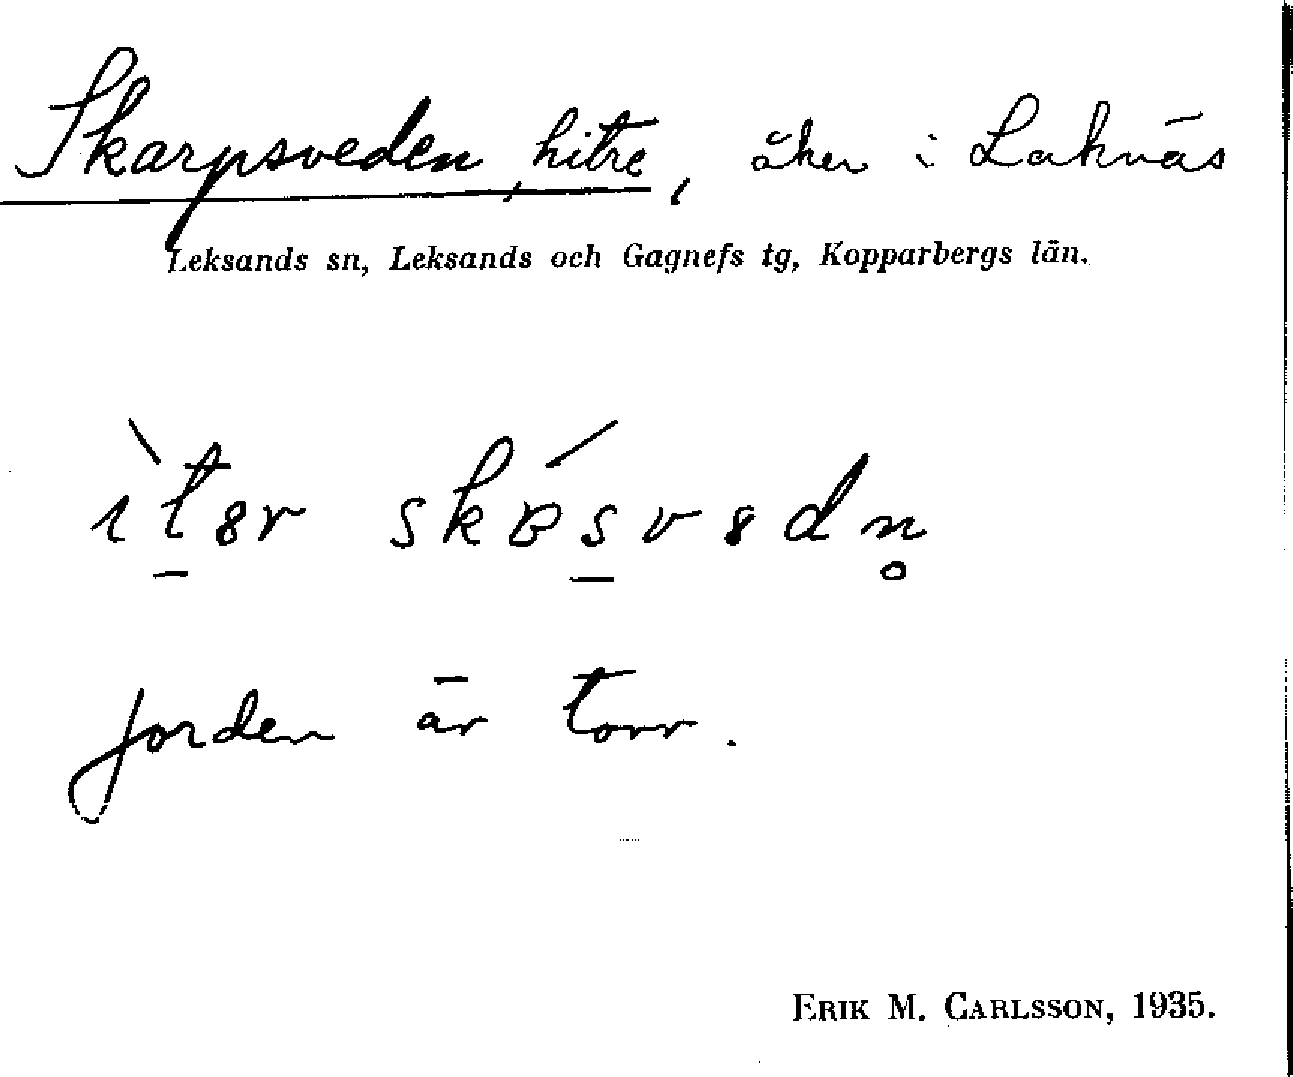 Skarpsveden, hitre, åker i Laknäs
Leksands sn, Leksands och Gagnefs tg, Kopparbergs län.
jorden är torr.
ERIK M. CARLSSON, 1935.